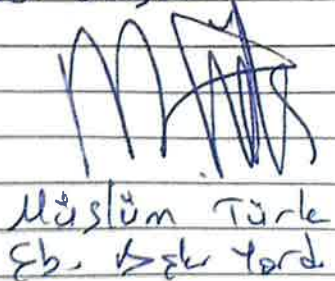 Müslüm Türk
Eb. Bşk. Yard.